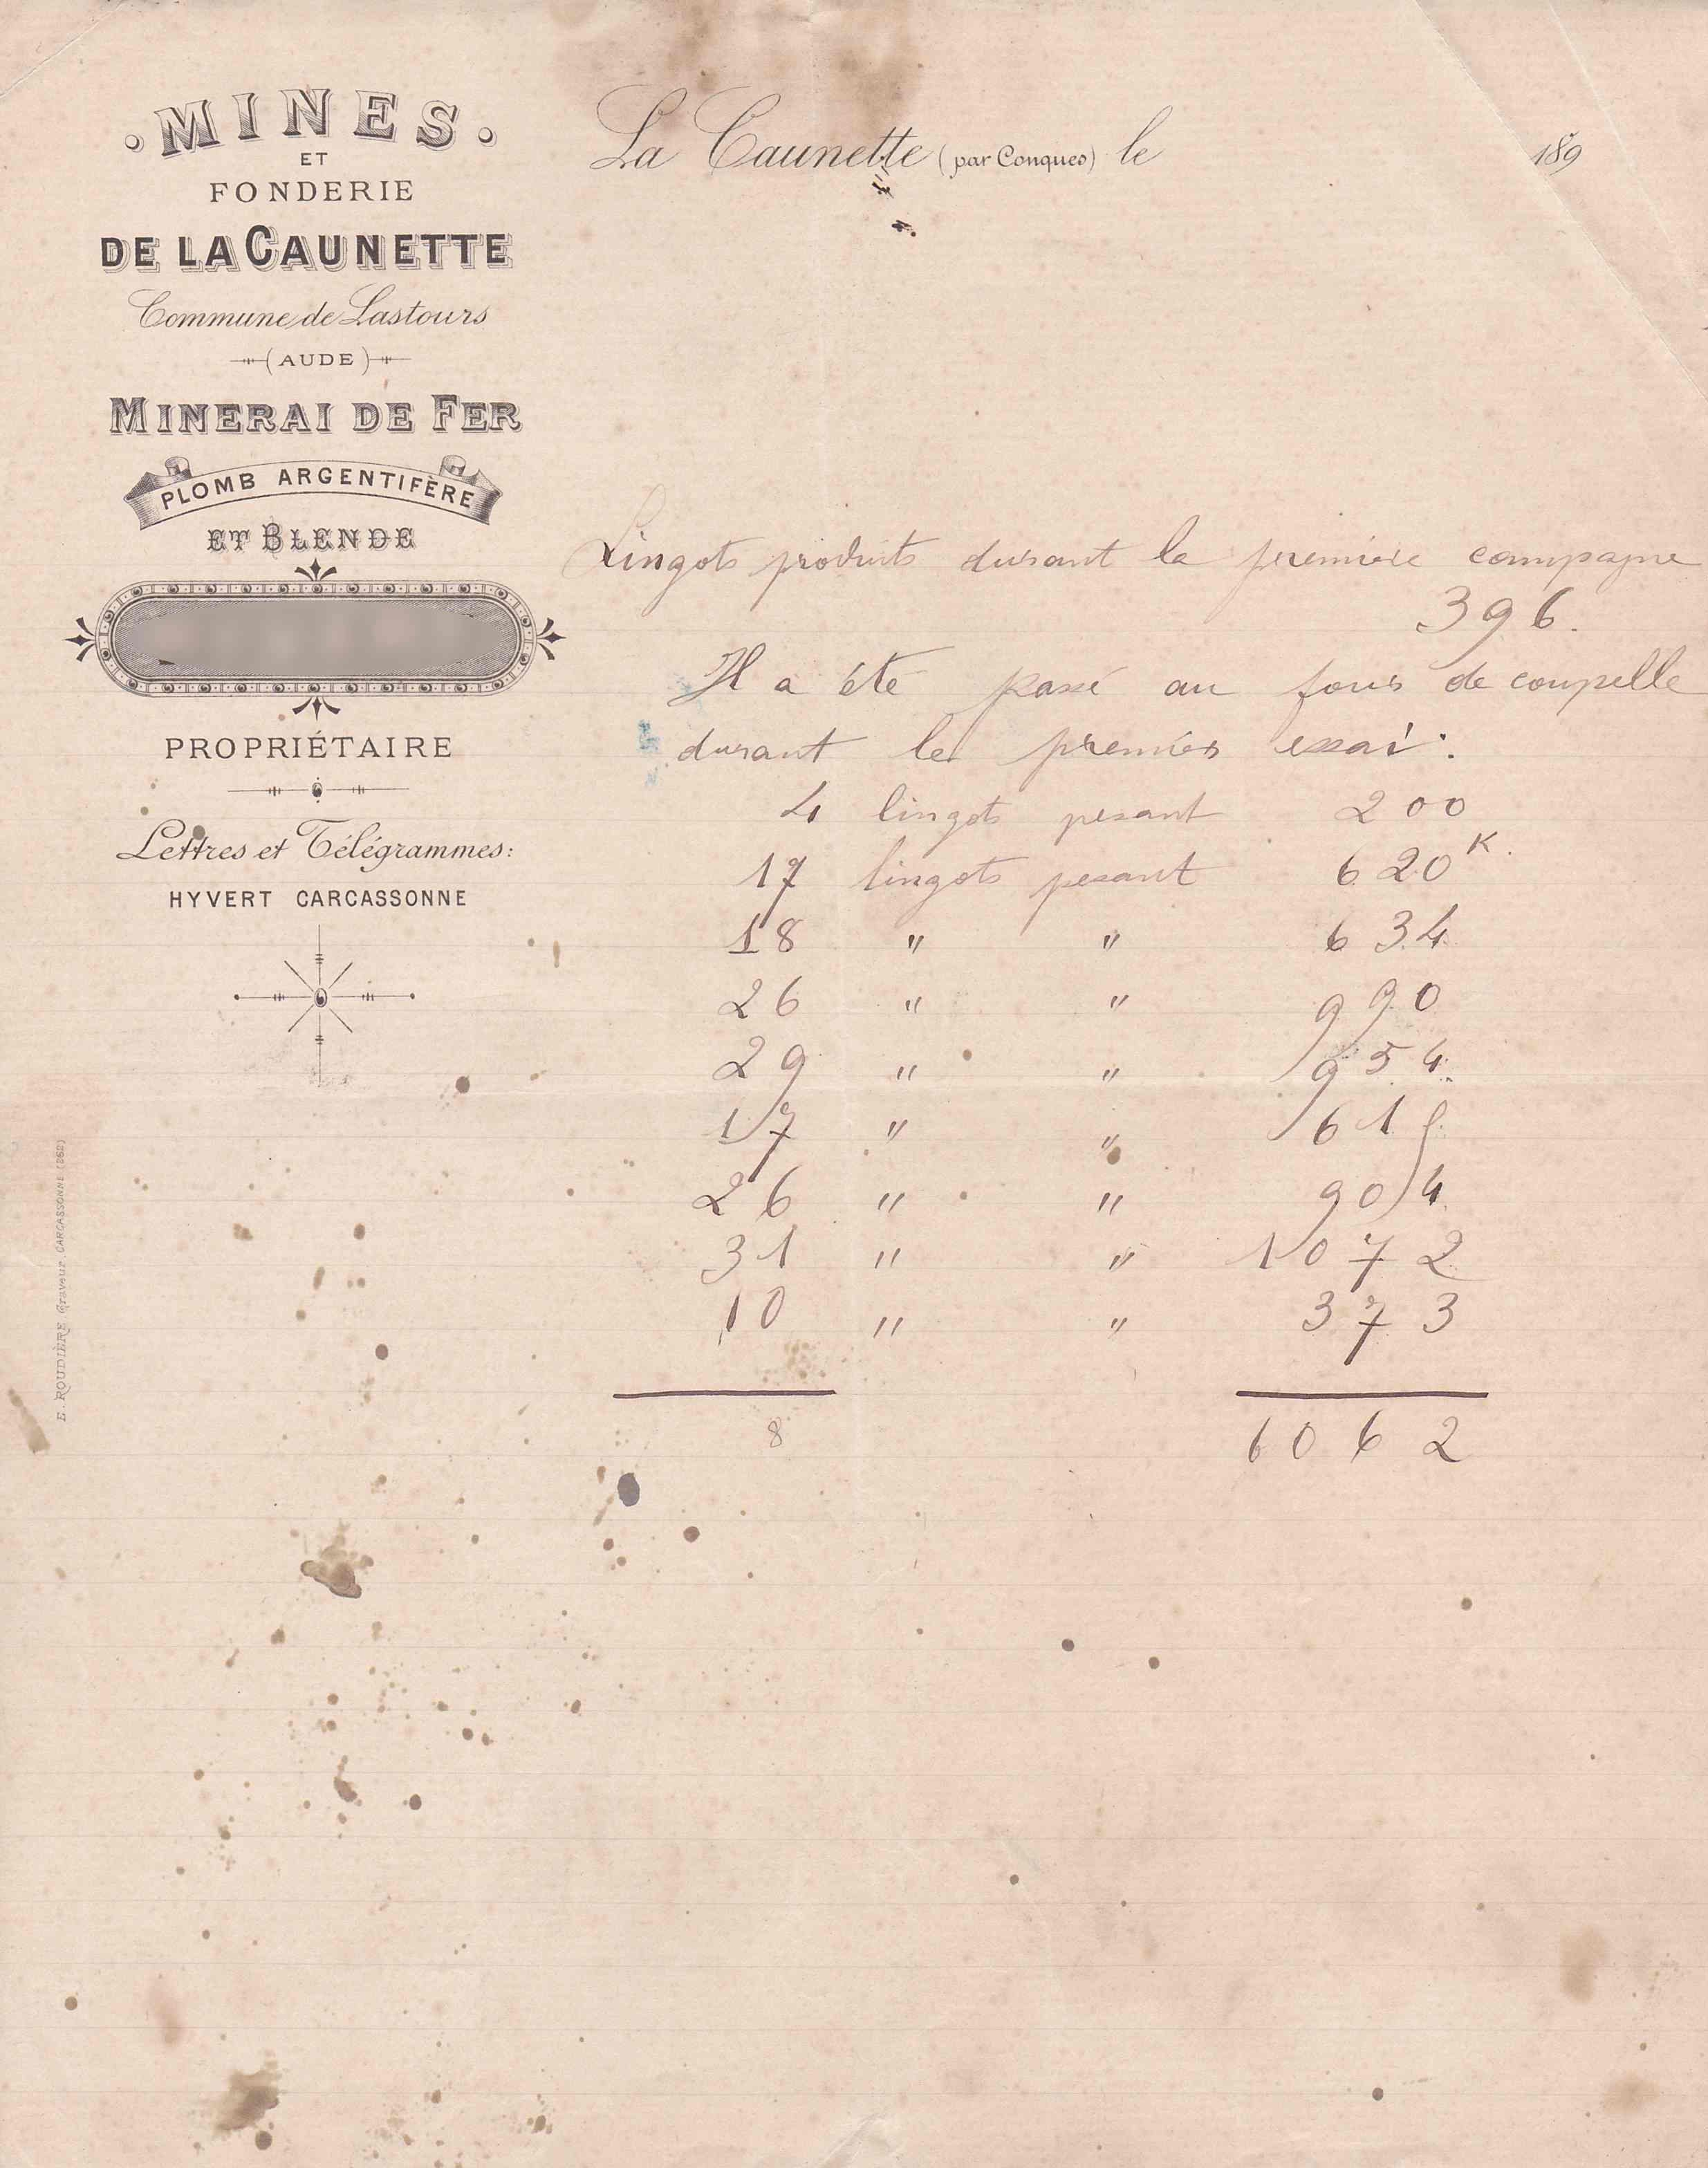 . MINES .
ET
FONDERIE
DE LA CAUNETTE
Commune de Lastours
(AUDE)
MINERAI DE FER
PLOMB ARGENTIFÈRE
ET BLENDE
PROPRIÉTAIRE
Lettres et Télégrammes:
HYVERT CARCASSONNE
E. ROUDIÈRE Graveur CARCASSONNE (262)
La Caunette (par Conques) le 189
Lingots produits durant la première campagne
396.
Il a été passé au four de coupelle
durant le premier essai :
4 lingots pesant 200
17 lingots pesant 620 K.
18 " " 634
26 " " 990
29 " " 954
17 " " 615
26 " " 904
31 " " 1072
10 " " 373
8 6062